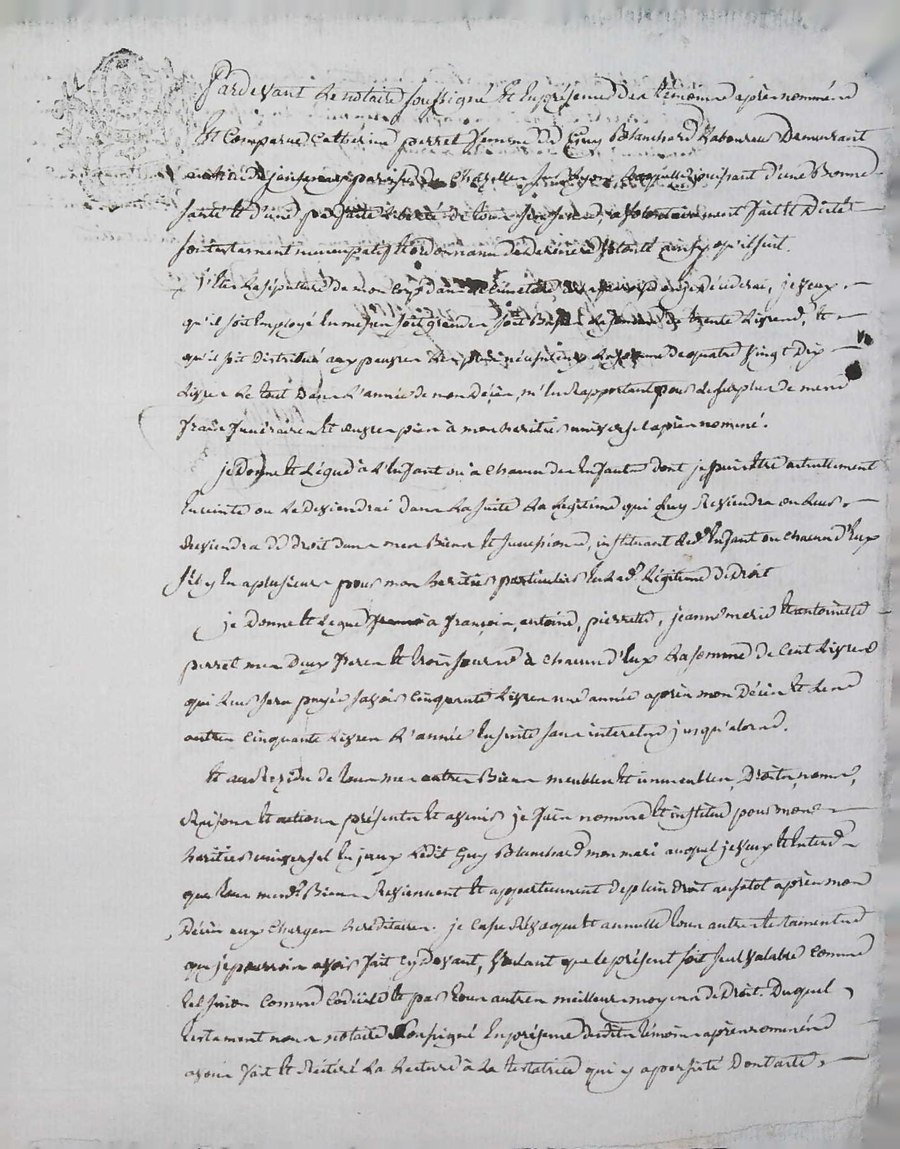 Pardevant Le notaire soussigné Et En présence des témoins après nommés
Est Comparue Catherine perret femme de Guy Blanchard Laboureur Demeurant
paroisse de Chazelles sur Lyon Laquelle jouissant d'une Bonne
santé Et d'une parfaite Liberté de tous ses sens, a volontairement fait Et Dicté
son testament nuncupatif Et ordonnance de dernière volonté ainsy qu'il suit.
j'élis La sépulture de mon Corps dans Le cimetière de où je décéderai, je veux
qu'il soit Employé En messes soit grandes soit Basses La somme de trente Livres, Et
qu'il soit Distribué aux pauvres Les plus nécessiteux La somme de quatre vingt Dix
Livres Le tout Dans L'année de mon Décès, m'En Rapportant pour Le surplus de mes
frais funéraires Et œuvres pies à mon héritier universel après nommé.
je Donne Et Lègue à L'Enfant ou à Chacun des Enfants dont je puis Etre actuellement
Enceinte ou Le Deviendrai Dans La suite La Légitime qui Luy Reviendra ou Leur
Reviendra de Droit dans mes Biens Et succession, instituant Led. Enfant ou Chacun d'Eux
s'il y En a plusieurs pour mon héritier particulier En Lad. Légitime de Droit
je Donne Et Lègue à françois, antoine, pierrette, jeanne marie Et antoinette
perret mes Deux frères Et trois sœurs à Chacun d'Eux La somme de Cent Livres
qui Leur sera payée savoir Cinquante Livres une année après mon Décès Et Les
autres Cinquante Livres L'année Ensuite sans intérêts jusqu'alors.
Et au Rezidu de tous mes autres Biens meubles Et immeubles, Droits, noms,
Raisons Et actions présents Et avenir je fais nomme Et institue pour mon
héritier universel En iceux Ledit Guy Blanchard mon mari auquel je veux Et Entend
que tous mesd. Biens Reviennent Et appartiennent de plein Droit aussitot après mon
Décès aux Charges héréditaires. je Casse Révoque Et annulle tous autres testaments
que je pourrois avoir fait Cy devant, voulant que le présent soit seul valable Comme
tel sinon Comme Codicile Et par tous autres meilleurs moyens de Droit. Duquel
testament nous notaire soussigné En présence desdits témoins après nommés
avons fait Et Réitéré La Lecture à La testatrice qui y a persisté Dont acte,